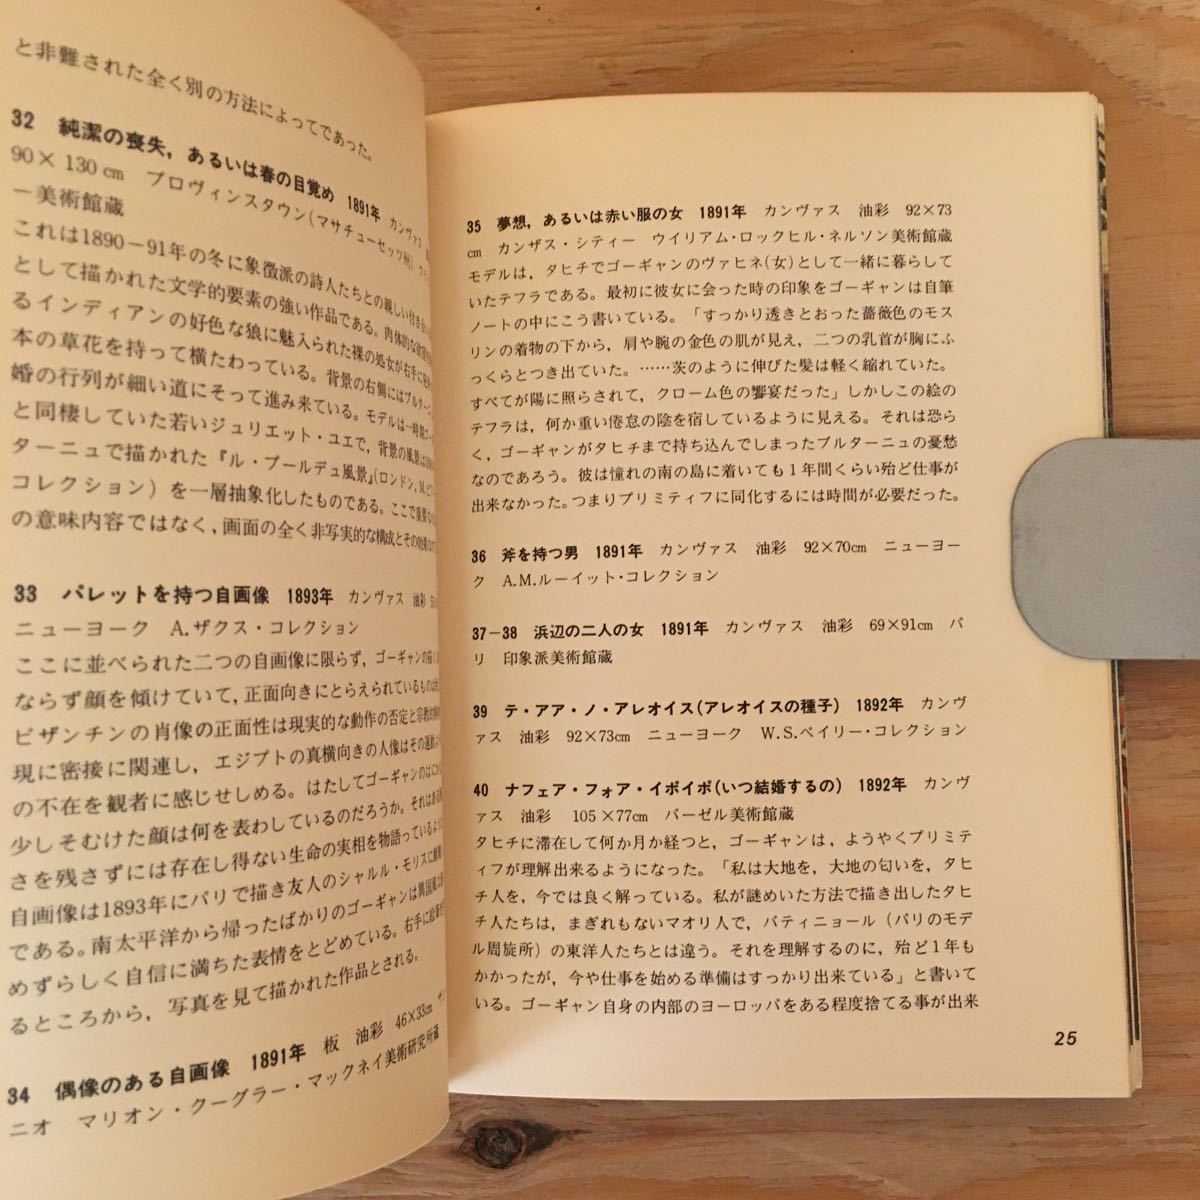 と非難された全く別の方法によってであった。
32 純潔の喪失，あるいは春の目覚め 1891年 カンヴァス
90×130cm プロヴィンスタウン(マサチューセッツ州)
ー美術館蔵
これは1890－91年の冬に象徴派の詩人たちとの親しい付き合い
として描かれた文学的要素の強い作品である。肉体的な
るインディアンの好色な狼に魅入られた裸の処女が右手に
本の草花を持って横たわっている。背景の右側にはブルターニ
婚の行列が細い道にそって進み来ている。モデルは一時期
と同棲していた若いジュリエット・ユエで，背景の風景は
ターニュで描かれた『ル・プールデュ風景』(ロンドン、M.
コレクション）を一層抽象化したものである。ここで重要な
の意味内容ではなく，画面の全く非写実的な構成とその
33 パレットを持つ自画像 1893年 カンヴァス 油彩
ニューヨーク A.ザクス・コレクション
ここに並べられた二つの自画像に限らず，ゴーギャンの描く
ならず顔を傾けていて，正面向きにとらえられているものは
ビザンチンの肖像の正面性は現実的な動作の否定と宗教的
現に密接に関連し，エジプトの真横向きの人像はその運動
の不在を観者に感じせしめる。はたしてゴーギャンのはにか
少しそむけた顔は何を表わしているのだろうか。それはある
さを残さずには存在し得ない生命の実相を物語っているよう
自画像は1893年にパリで描き友人のシャルル・モリスに
である。南太平洋から帰ったばかりのゴーギャンは異国風
めずらしく自信に満ちた表情をとどめている。右手に絵筆が
るところから，写真を見て描かれた作品とされる。
34 偶像のある自画像 1891年 板 油彩 46×33cm サ
ニオ マリオン・クーグラー・マックネイ美術研究所蔵
35 夢想，あるいは赤い服の女 1891年 カンヴァス 油彩 92×73
cm カンザス・シティー ウイリアム・ロックヒル・ネルソン美術館蔵
モデルは，タヒチでゴーギャンのヴァヒネ(女)として一緒に暮らして
いたテフラである。最初に彼女に会った時の印象をゴーギャンは自筆
ノートの中にこう書いている。「すっかり透きとおった薔薇色のモス
リンの着物の下から，肩や腕の金色の肌が見え，二つの乳首が胸にふ
っくらとつき出ていた。……茨のように伸びた髪は軽く縮れていた。
すべてが陽に照らされて，クローム色の饗宴だった」しかしこの絵の
テフラは，何か重い倦怠の陰を宿しているように見える。それは恐ら
く，ゴーギャンがタヒチまで持ち込んでしまったブルターニュの憂愁
なのであろう。彼は憧れの南の島に着いても１年間くらい殆ど仕事が
出来なかった。つまりプリミティフに同化するには時間が必要だった。
36 斧を持つ男 1891年 カンヴァス 油彩 92×70cm ニューヨー
ク A.M.ルーイット・コレクション
37－38 浜辺の二人の女 1891年 カンヴァス 油彩 69×91cm パ
リ 印象派美術館蔵
39 テ・アア・ノ・アレオイス(アレオイスの種子) 1892年 カンヴ
ァス 油彩 92×73cm ニューヨーク W.S.ペイリー・コレクション
40 ナフェア・フォア・イポイポ(いつ結婚するの) 1892年 カン
ヴァス 油彩 105×77cm バーゼル美術館蔵
タヒチに滞在して何か月か経つと，ゴーギャンは，ようやくプリミテ
ィフが理解出来るようになった。「私は大地を，大地の匂いを，タヒ
チ人を，今では良く解っている。私が謎めいた方法で描き出したタヒ
チ人たちは，まぎれもないマオリ人で，バティニョール（パリのモデ
ル周旋所）の東洋人たちとは違う。それを理解するのに，殆ど１年も
かかったが，今や仕事を始める準備はすっかり出来ている」と書いて
いる。ゴーギャン自身の内部のヨーロッパをある程度捨てる事が出来
25